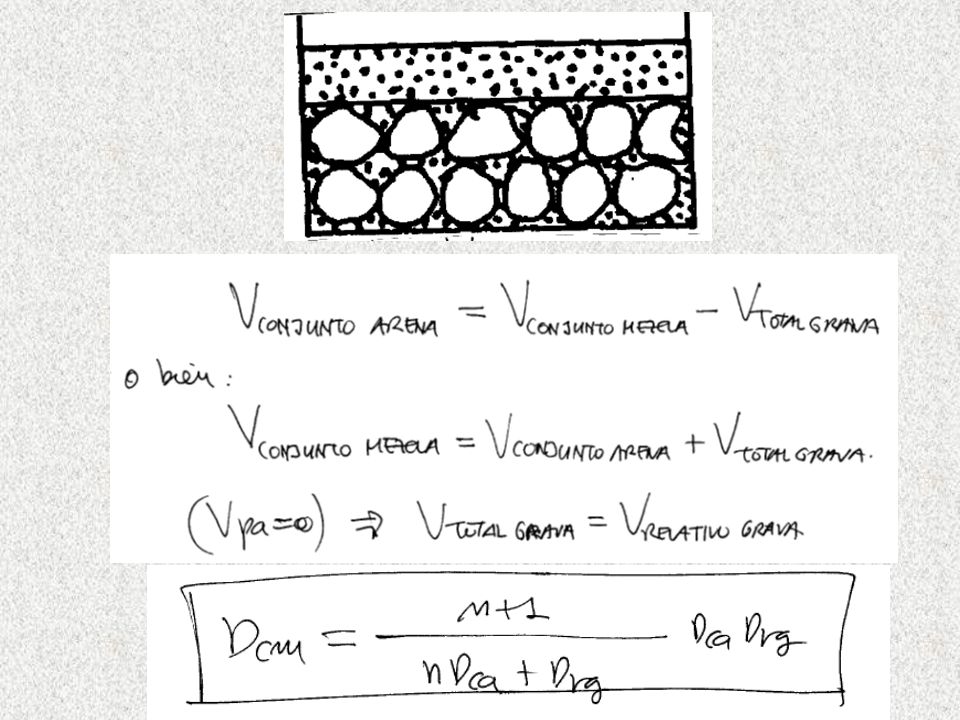 V CONJUNTO ARENA = V CONJUNTO MEZCLA - V TOTAL GRAVA
o bien:
V CONJUNTO MEZCLA = V CONJUNTO ARENA + V TOTAL GRAVA.
(Vpa=0) ⇒ V TOTAL GRAVA = V RELATIVO GRAVA
Dcm = (n+1) / (n Dca + Drg) Dca Drg